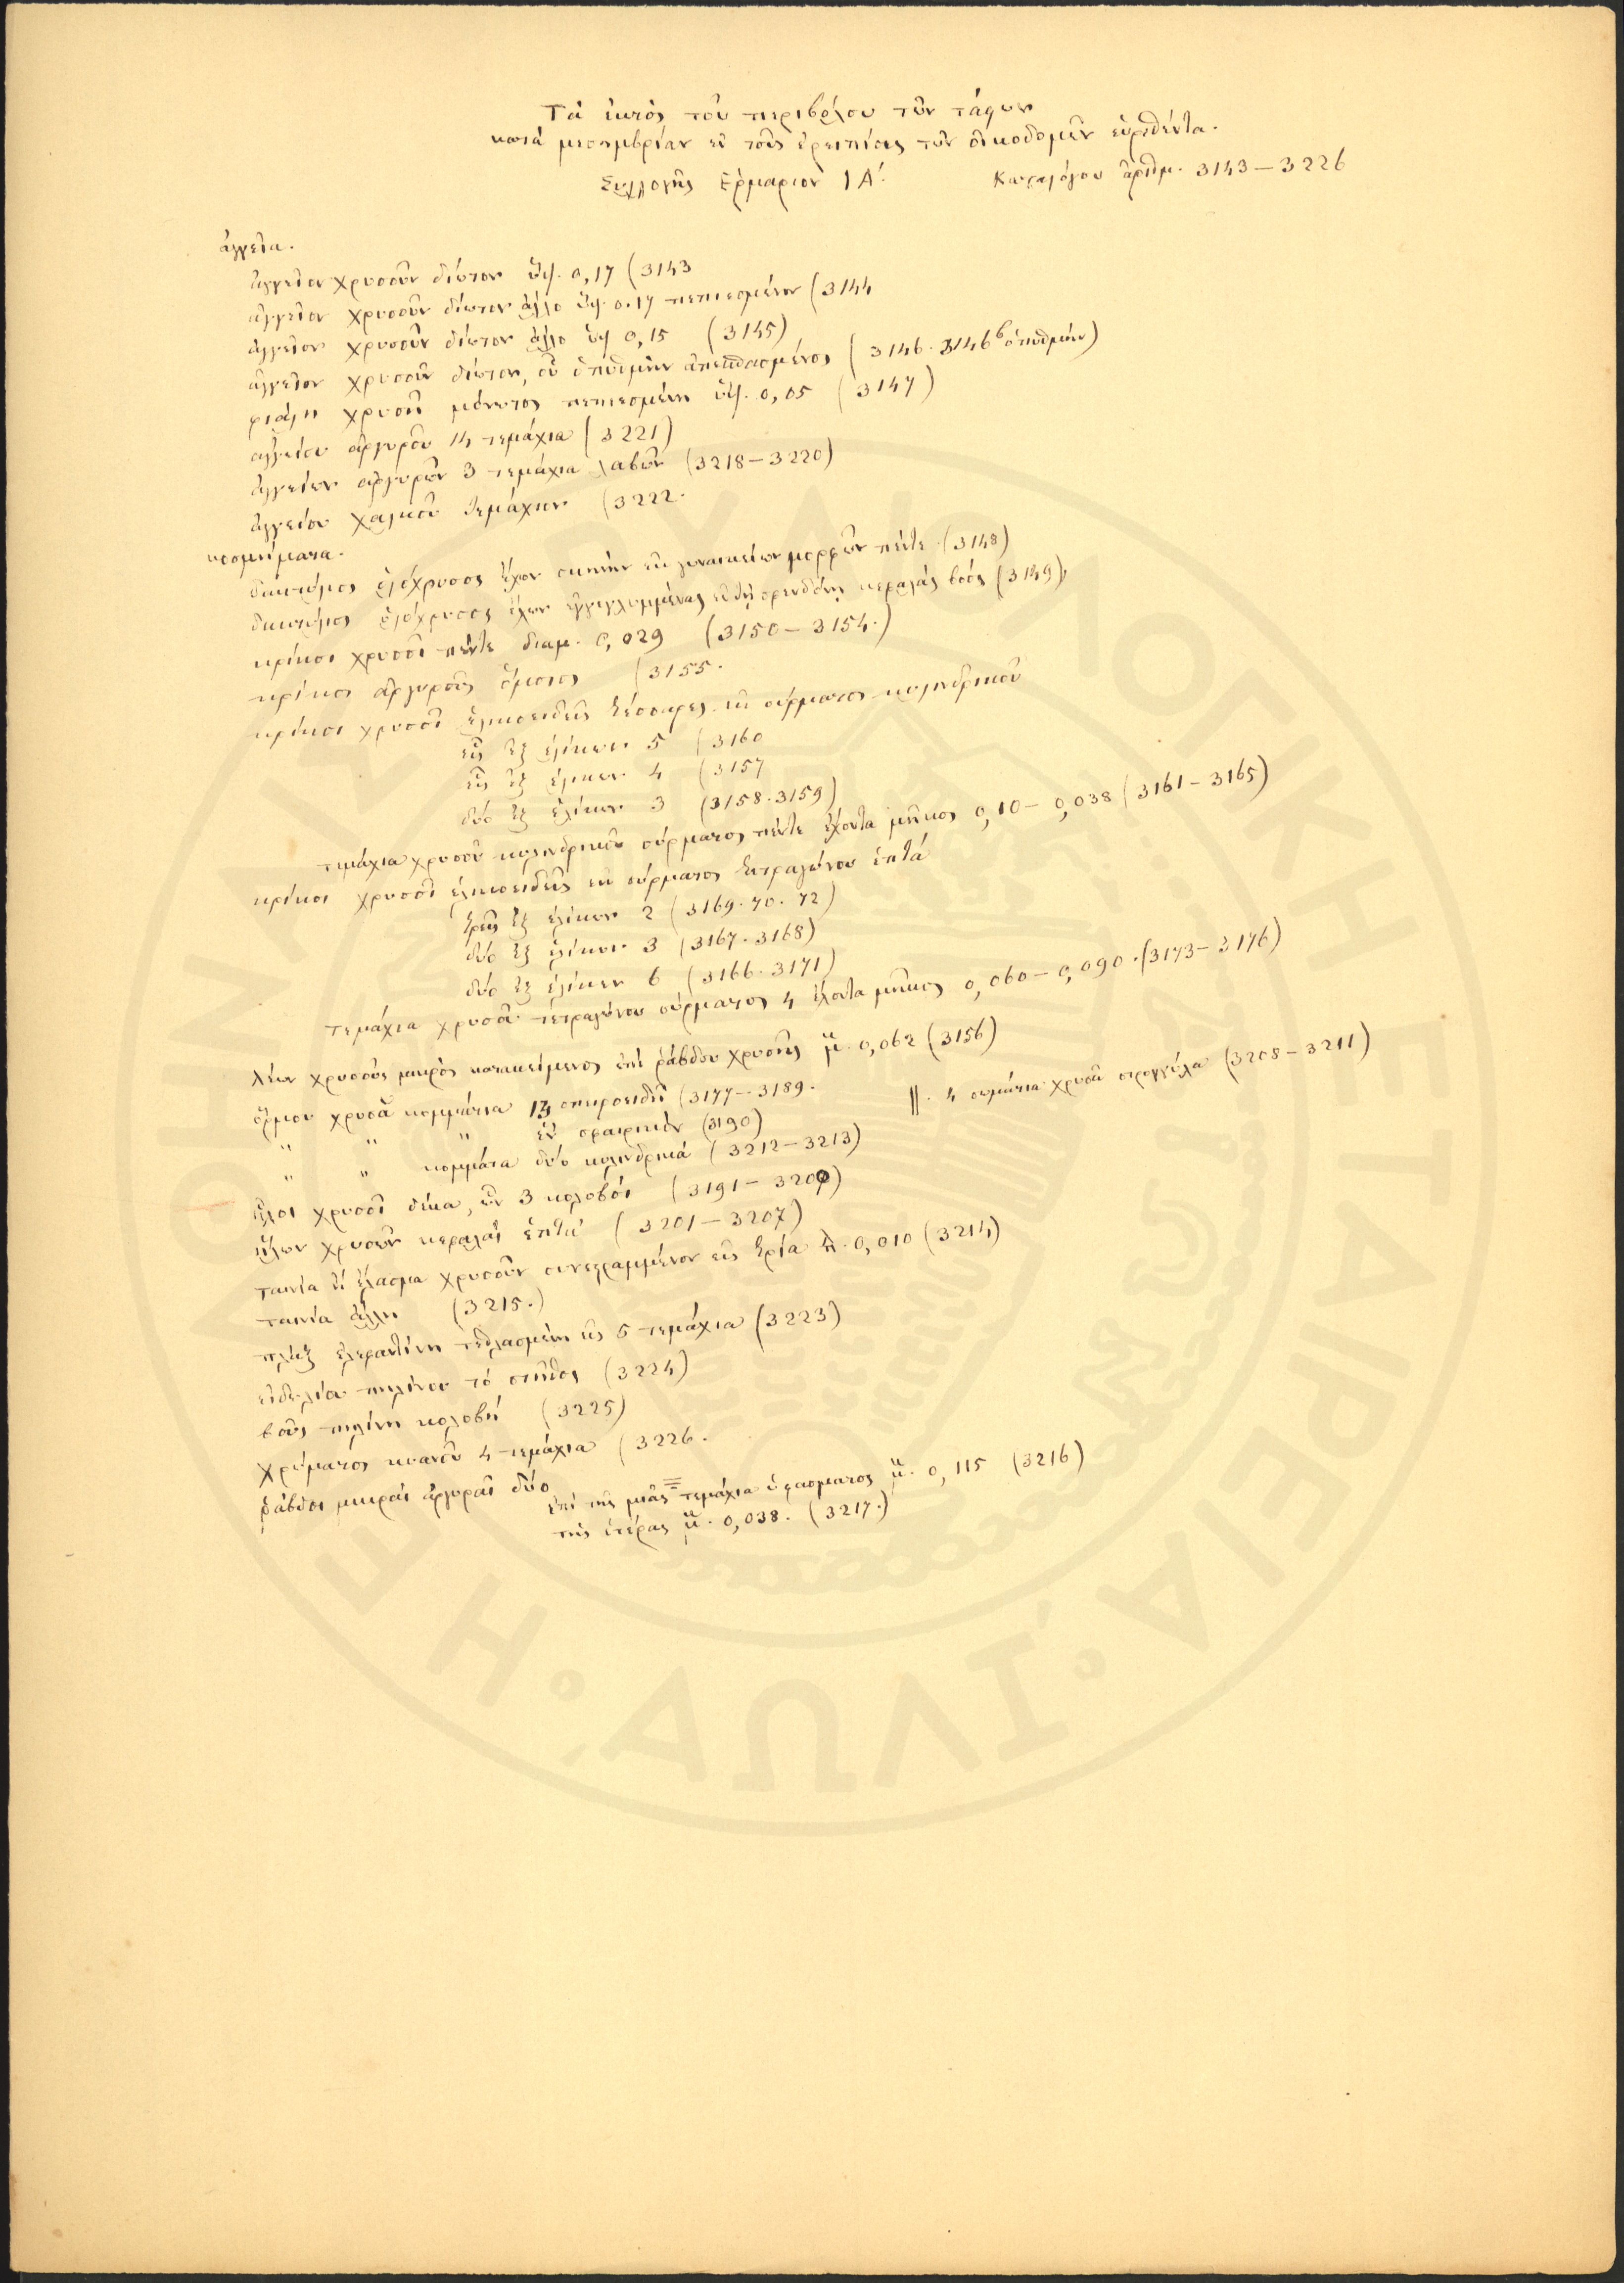 Τὰ ἐκτὸς τοῦ περιβόλου τῶν τάφων
κατὰ μεσημβρίαν ἐν τοῖς ἐρειπίοις τῶν οἰκοδομῶν εὑρεθέντα.
Συλλογῆς Ἑρμάριον ΙΑ΄. Καταλόγου ἀριθμ. 3143—3226
ἀγγεῖα.
ἀγγεῖον χρυσοῦν δίωτον ὕψ. 0,17 (3143
ἀγγεῖον χρυσοῦν δίωτον ἄλλο ὕψ. 0.17 πεπιεσμένον (3144
ἀγγεῖον χρυσοῦν δίωτον ἄλλο ὕψ 0,15 (3145)
ἀγγεῖον χρυσοῦν δίωτον, οὗ ὁ πυθμὴν ἀπεσπασμένος (3146. 3146β ὁ πυθμήν)
φιάλη χρυσῆ μόνωτος πεπιεσμένη ὕψ. 0,05 (3147)
ἀγγείου ἀργυροῦ 14 τεμάχια (3221)
ἀγγείων ἀργυρῶν 3 τεμάχια λαβῶν (3218—3220)
ἀγγείου χαλκοῦ τεμάχιον (3222.
κοσμήματα.
δακτύλιος ὁλόχρυσος ἔχων σκηνὴν ἐκ γυναικείων μορφῶν πέντε (3148)
δακτύλιος ὁλόχρυσος ἔχων ἐγγεγλυμμένας ἐν τῇ σφενδόνῃ κεφαλὰς βοός (3149),
κρίκοι χρυσοῖ πέντε διαμ. 0,029 (3150—3154.)
κρίκος ἀργυροῦς ὅμοιος (3155.
κρίκοι χρυσοῖ ἑλικοειδεῖς τέσσαρες ἐκ σύρματος κυλινδρικοῦ
εἷς ἐξ ἑλίκων 5 (3160
εἷς ἐξ ἑλίκων 4 (3157
δύο ἐξ ἑλίκων 3 (3158.3159)
τεμάχια χρυσοῦ κυλινδρικοῦ σύρματος πέντε ἔχοντα μῆκος 0,10—0,038 (3161—3165)
κρίκοι χρυσοῖ ἑλικοειδεῖς ἐκ σύρματος τετραγώνου ἑπτά
τρεῖς ἐξ ἑλίκων 2 (3169.70.72)
δύο ἐξ ἑλίκων 3 (3167.3168)
δύο ἐξ ἑλίκων 6 (3166.3171)
τεμάχια χρυσᾶ τετραγώνου σύρματος 4 ἔχοντα μῆκος 0,060—0,090.(3173—3176)
λέων χρυσοῦς μικρὸς κατακείμενος ἐπὶ ῥάβδου χρυσῆς μ. 0,062 (3156)
ὅρμου χρυσᾶ κομμάτια 13 σπυροειδῆ (3177—3189. ||. 4 σωμάτια χρυσᾶ στρογγύλα (3208—3211)
" " " ἓν σφαιρικόν (3190)
" " κομμάτια δύο κυλινδρικά (3212—3213)
ἧλοι χρυσοῖ δέκα, ὧν 3 κολοβοί (3191—3200)
ἥλων χρυσῶν κεφαλαὶ ἑπτὰ (3201—3207)
ταινία ἢ ἔλασμα χρυσοῦν συνεστραμμένον εἰς τρία π. 0,010 (3214)
ταινία ἄλλη (3215.)
πλὰξ ἐλεφαντίνη τεθλασμένη εἰς 5 τεμάχια (3223)
εἰδωλίου πηλίνου τὸ στῆθος (3224)
βοῦς πηλίνη κολοβή (3225)
χρώματος κυανοῦ 4 τεμάχια (3226.
ῥάβδοι μικραὶ ἀργυραῖ δύο
ἐπὶ τῆς μιᾶς τεμάχια ὑφάσματος μ. 0,115 (3216)
τῆς ἑτέρας μ. 0,038. (3217.)